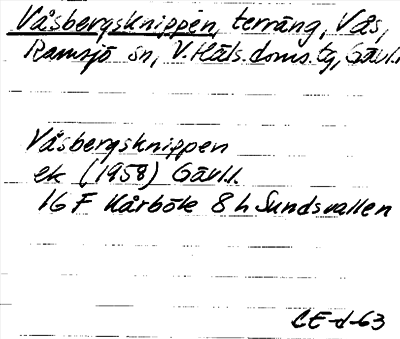 Våsbergsknippen, terräng, Vås,
Ramsjö sn, V. Häls. doms. tg, Gävl.l
Våsbergsknippen
ek (1958) Gävl.l.
16 F Kårböle 8 h Sundsvallen
CE-d-63